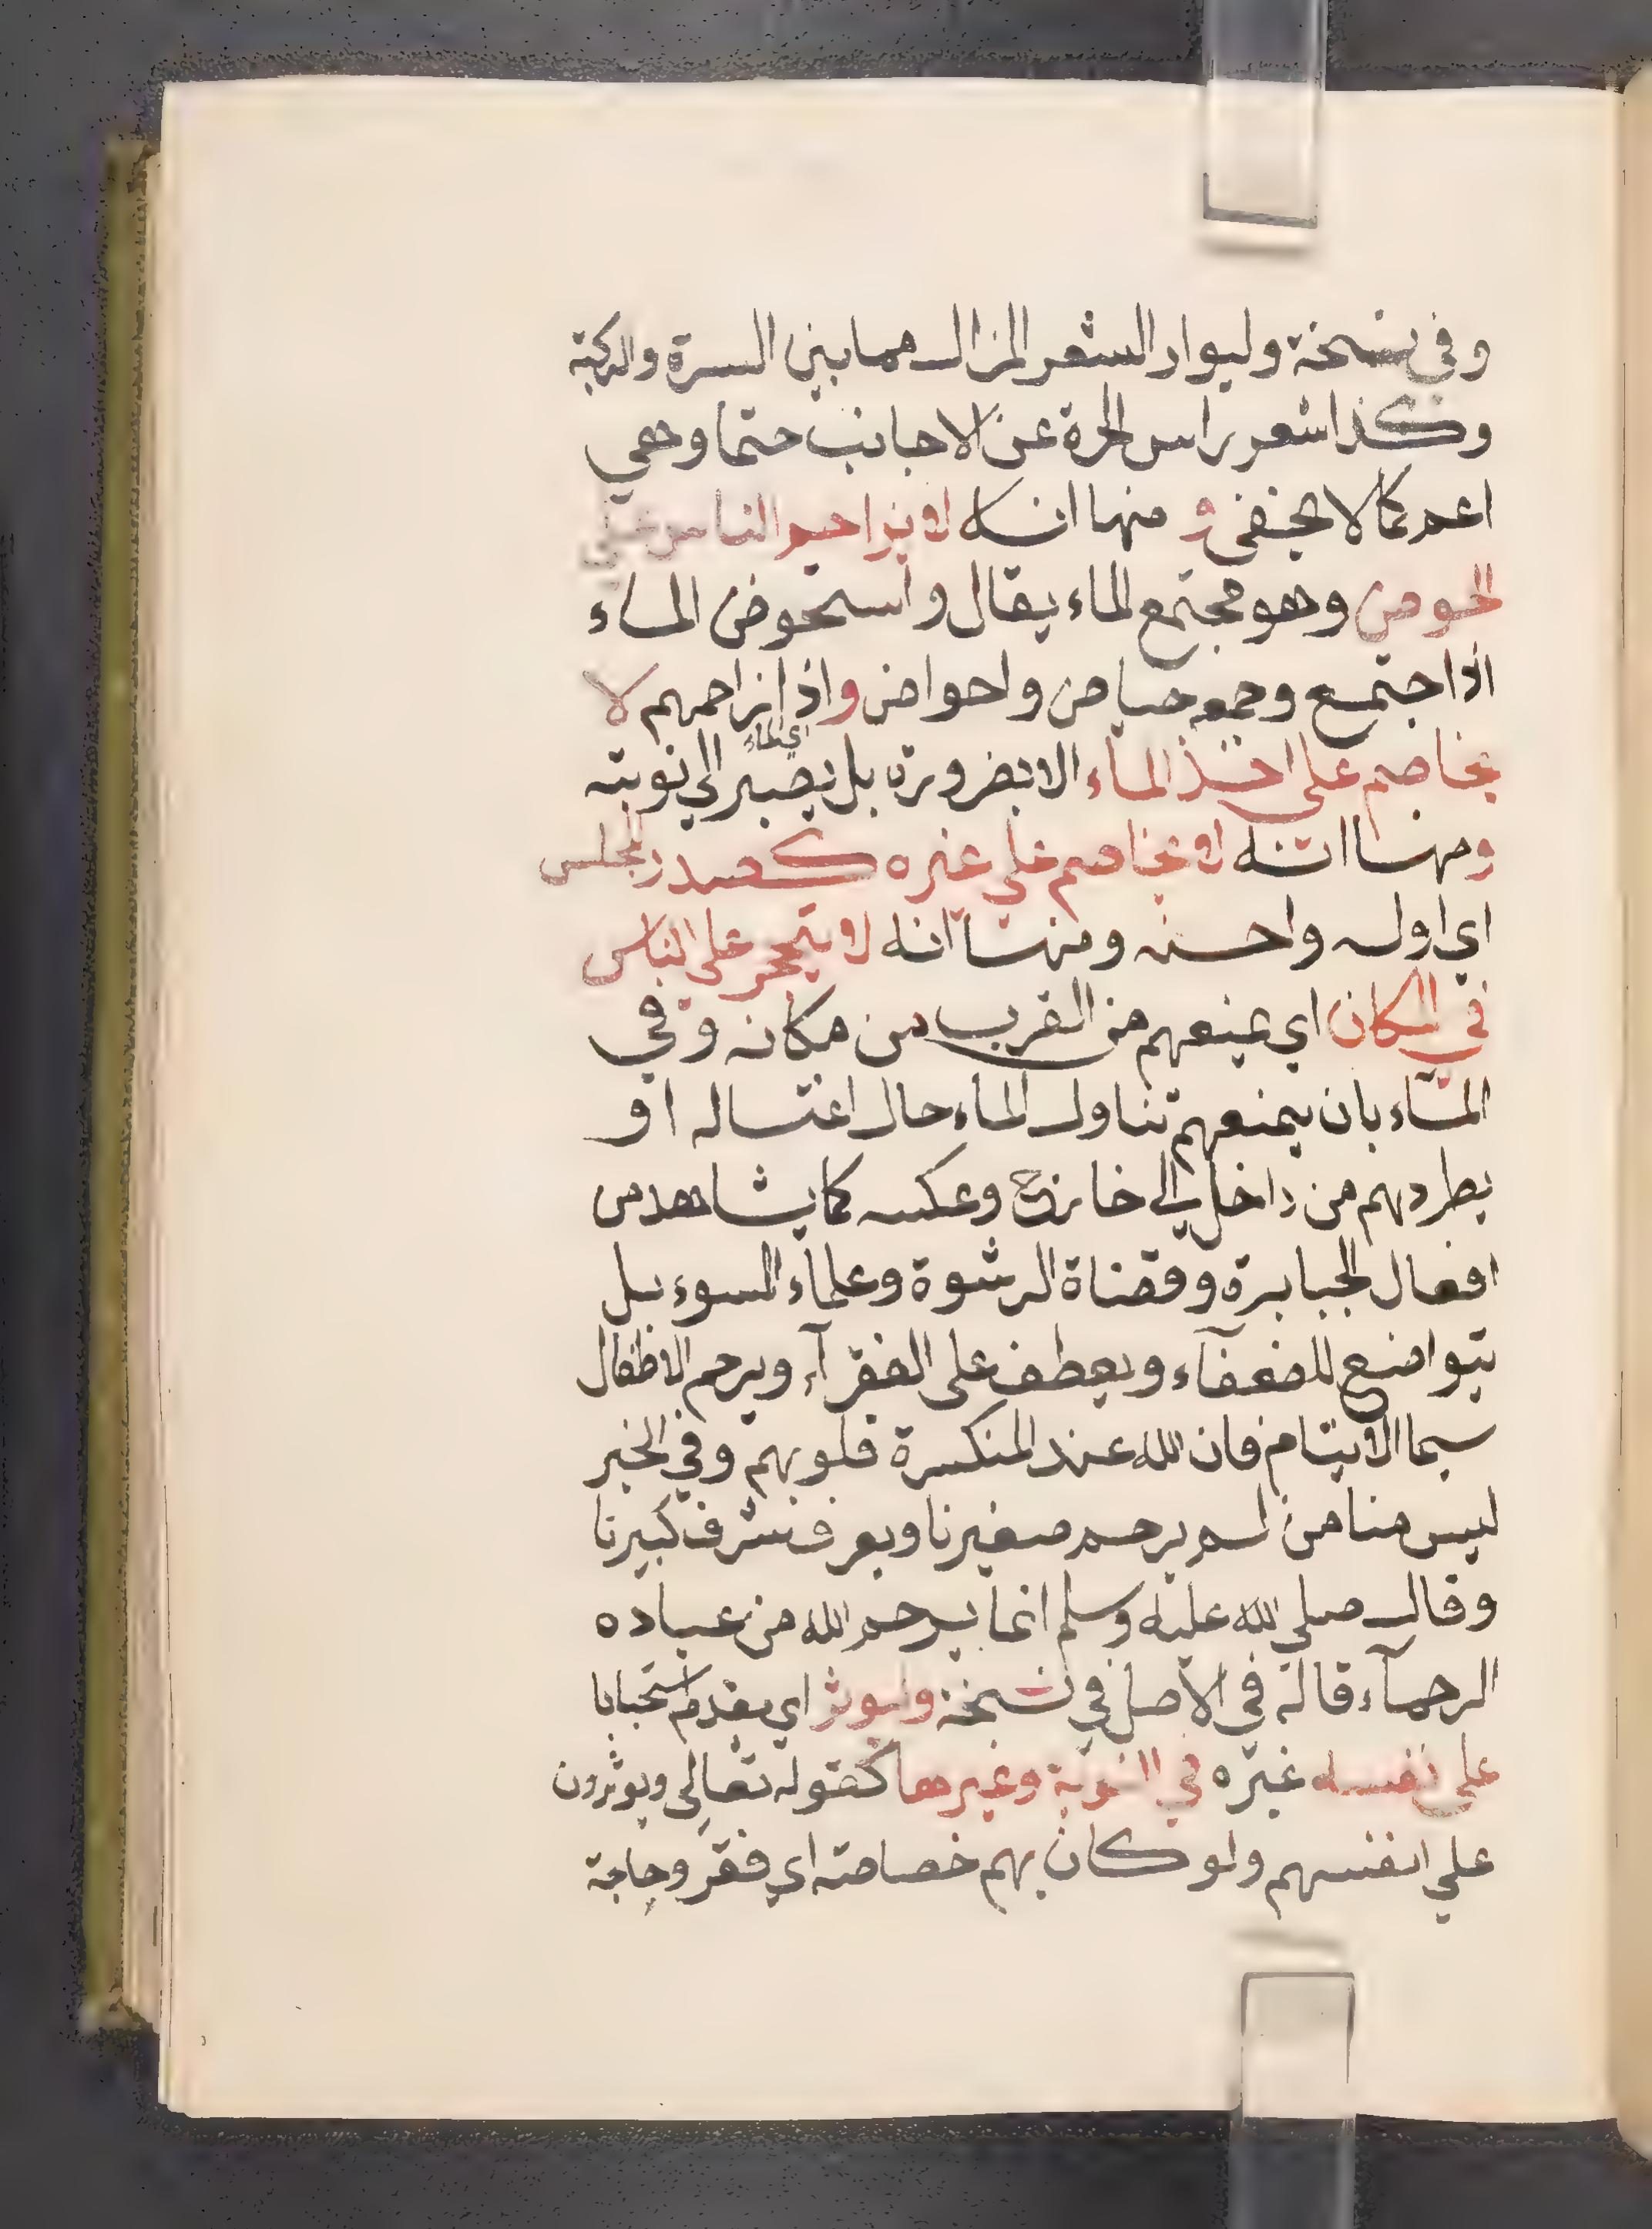 وفي نسخة وليوار الشعر المزال مما بين السرة والركبة
وكذا شعر راس الحرة عن الاجانب حتما وهي
اعم كما لا يخفى و منها انه لا يزاحم الناس على
الحوض وهو مجتمع الماء يقال واستحوض الماء
اذا اجتمع وجمعه حياض واحواض واذا زاحمهم لا
يخاصم على اخذ الماء الا بضرورة بل يصبر الى نوبته
ومنها انه لا يخاصم على غيره كصدر المجلس
اي اوله واحسنه ومنها انه لا يتحجر على الناس
في المكان اي يمنعهم من القرب من مكانه وفي
الماء بان يمنعهم تناول الماء حال اغتساله او
يطردهم من داخل الى خارج وعكسه كما يشاهد من
افعال الجبابرة وقضاة الرشوة وعلماء السوء بل
يتواضع للضعفآء ويعطف على الفقرآء ويرحم الاطفال
سيما الايتام فان الله عند المنكسرة قلوبهم وفي الخبر
ليس منا من لم يرحم صغيرنا ويعرف شرف كبيرنا
وقال صلى الله عليه وسلم انما يرحم الله من عباده
الرحمآء قاله في الاصل في نسخة وليوثر اي يقدم استحبابا
على نفسه غيره في النوبة وغيرها كقوله تعالى ويوثرون
على انفسهم ولو كان بهم خصاصة اي فقر وحاجة